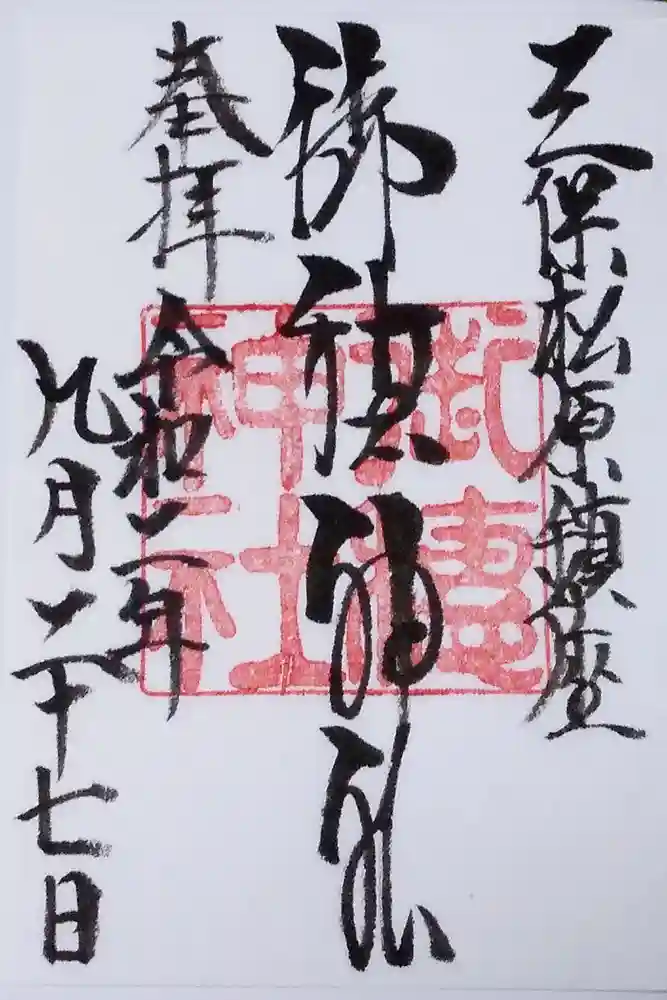 三保松原鎮座
御穂神社
奉拝
令和二年
九月二十七日
御穗
神社